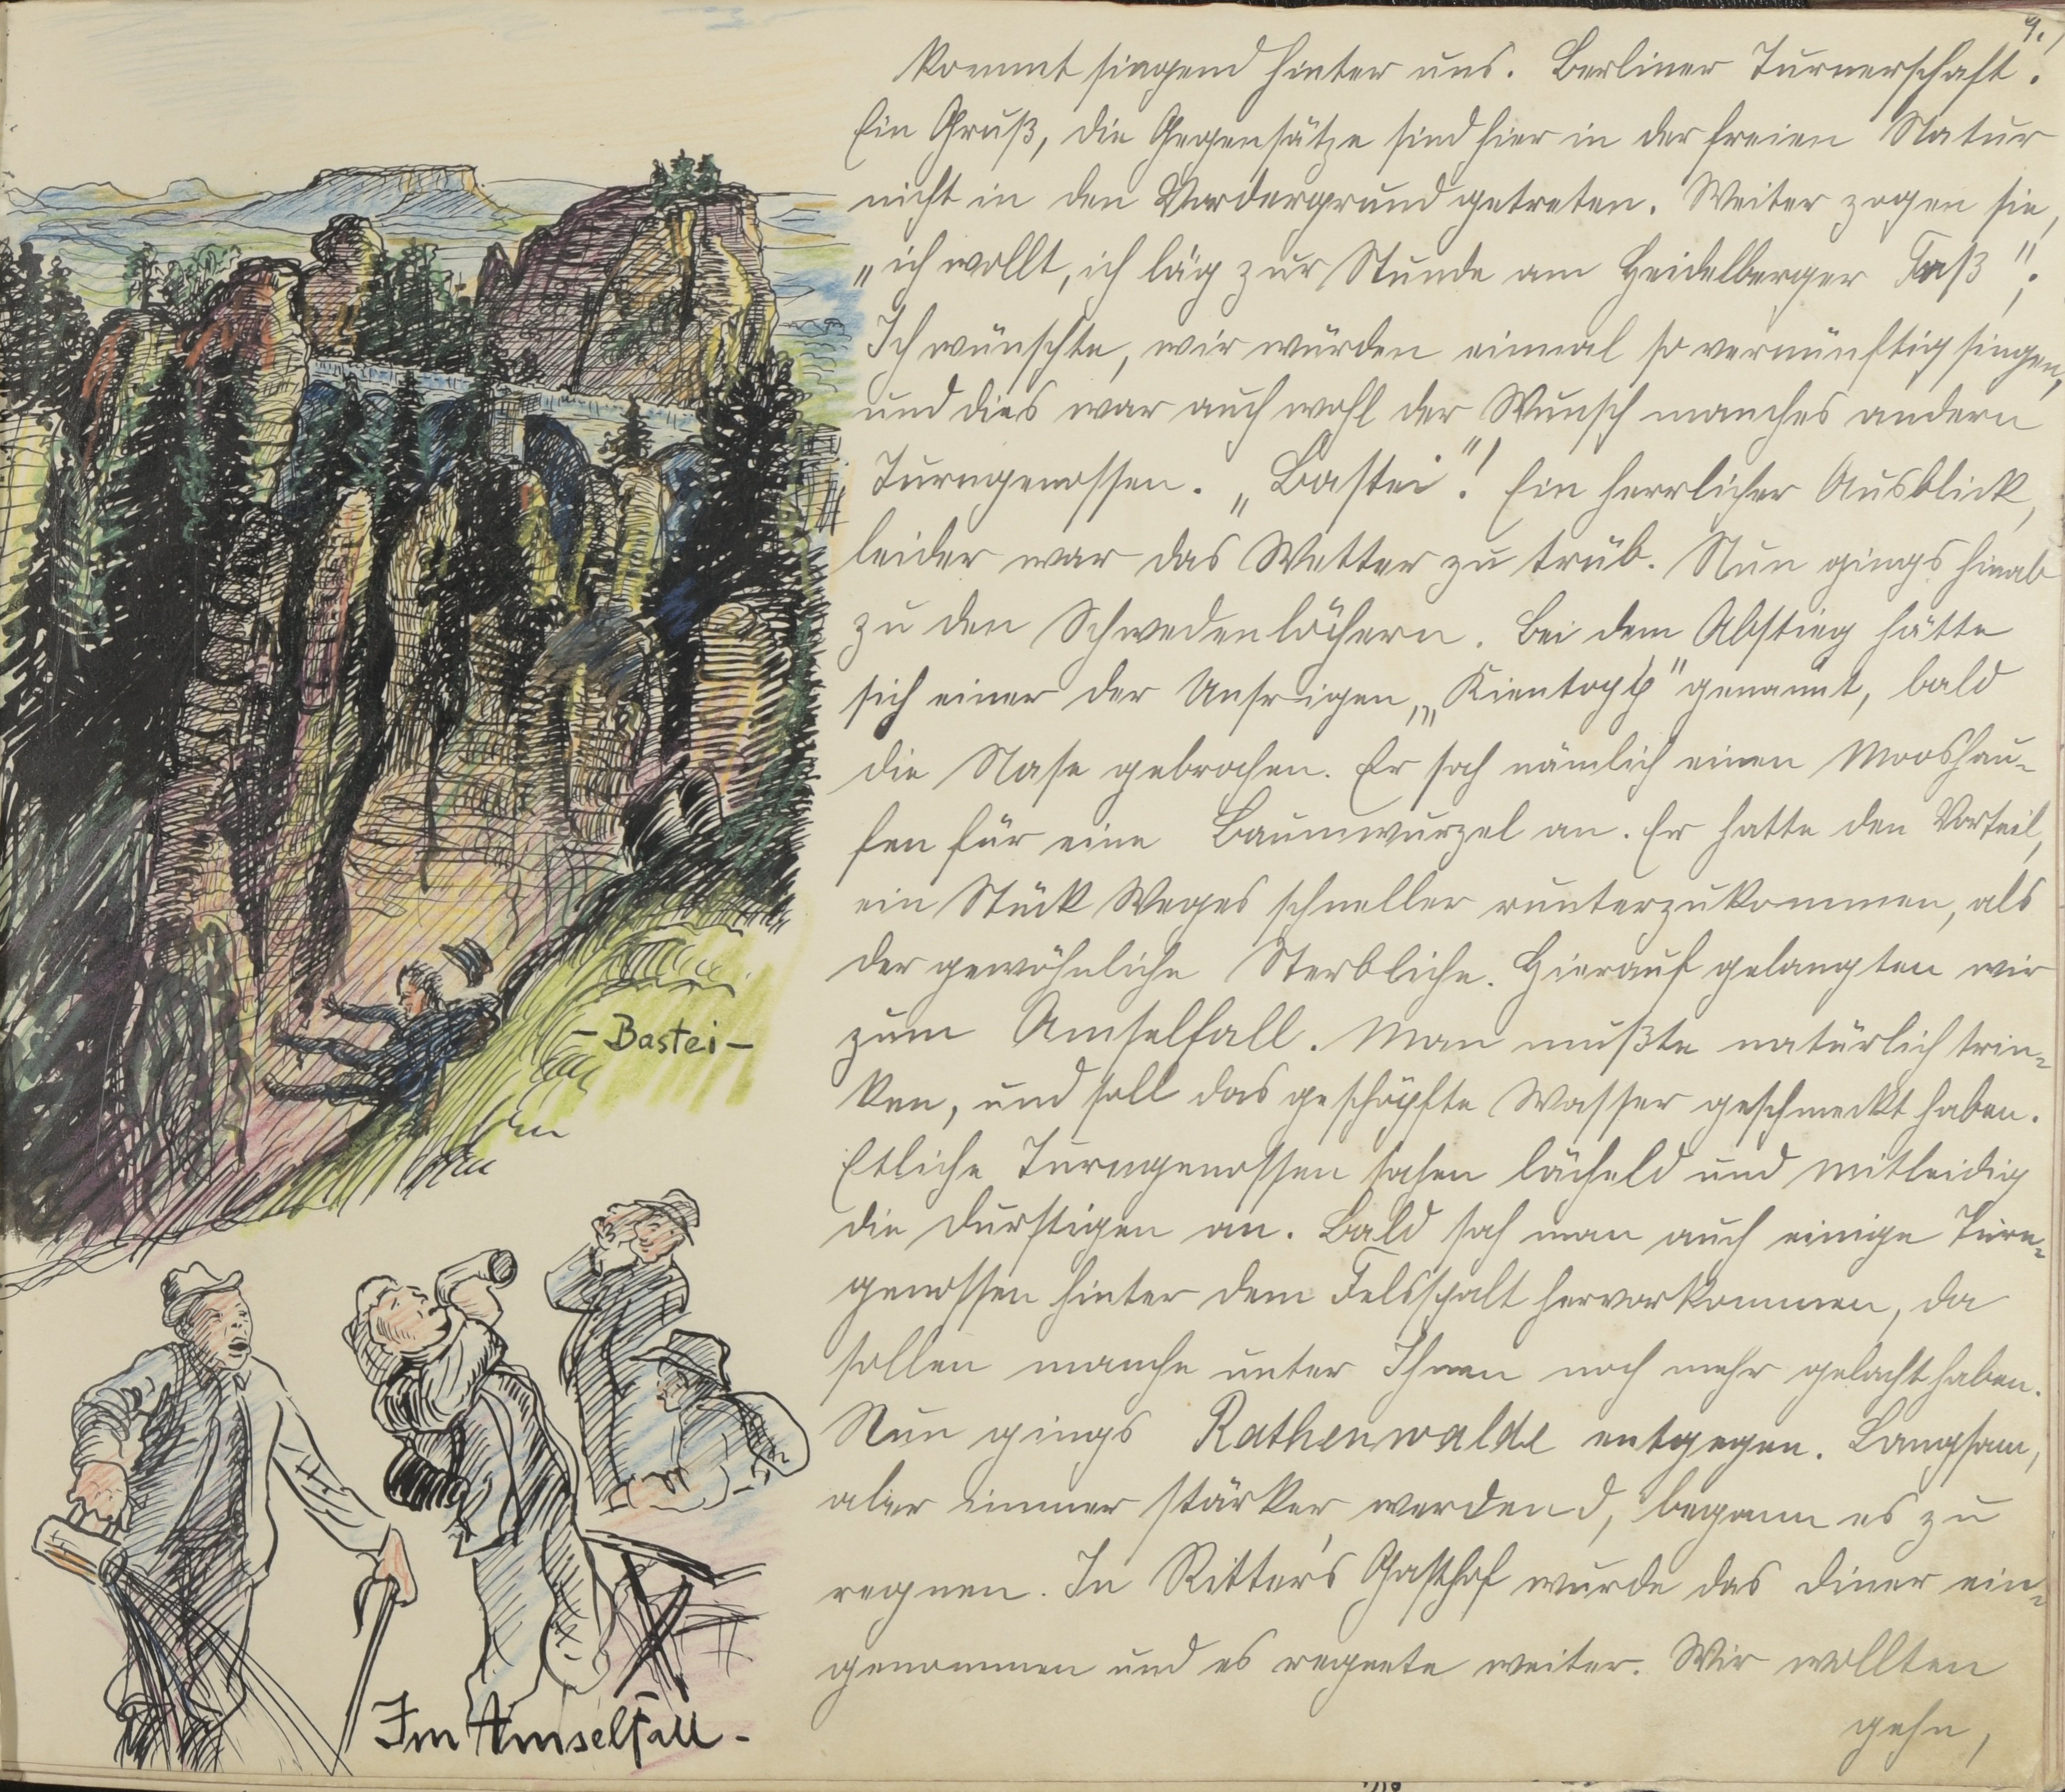 9.
kommt singend hinter uns. Berliner Turnerschaft.
Ein Gruß, die Gegensätze sind hier in der freien Natur
nicht in den Vordergrund getreten. Weiter zogen sie,
„ich wollt, ich läg zur Stunde am Heidelberger Faß";
Ich wünschte, wir würden einmal so vernünftig singen,
und dies war auch wohl der Wunsch manches andern
Turngenossen. „Bastei"! Ein herrlicher Ausblick,
leider war das Wetter zu trüb. Nun gings hinab
zu den Schwedenlöchern. Bei dem Abstieg hätte
sich einer der Unsrigen, „Kientopp" genannt, bald
die Nase gebrochen. Er sah nämlich einen Mooshau-
fen für eine Baumwurzel an. Er hatte den Vorteil,
ein Stück Weges schneller runterzukommen, als
der gewöhnliche Sterbliche. Hierauf gelangten wir
zum Amselfall. Man mußte natürlich trin-
ken, und soll das geschöpfte Wasser geschmeckt haben.
Etliche Turngenossen sahen lächeld und mitleidig
die Durstigen an. Bald sah man auch einige Turn-
genossen hinter dem Felsspalt hervorkommen, da
sollen manche unter Ihnen noch mehr gelacht haben.
Nun gings Rathenwalde entgegen. Langsam,
aber immer stärker werdend, begann es zu
regnen. In Ritter's Gasthof wurde das Diner ein-
genommen und es regnete weiter. Wir wollten
gehn,
-Bastei-
Im Amselfall-